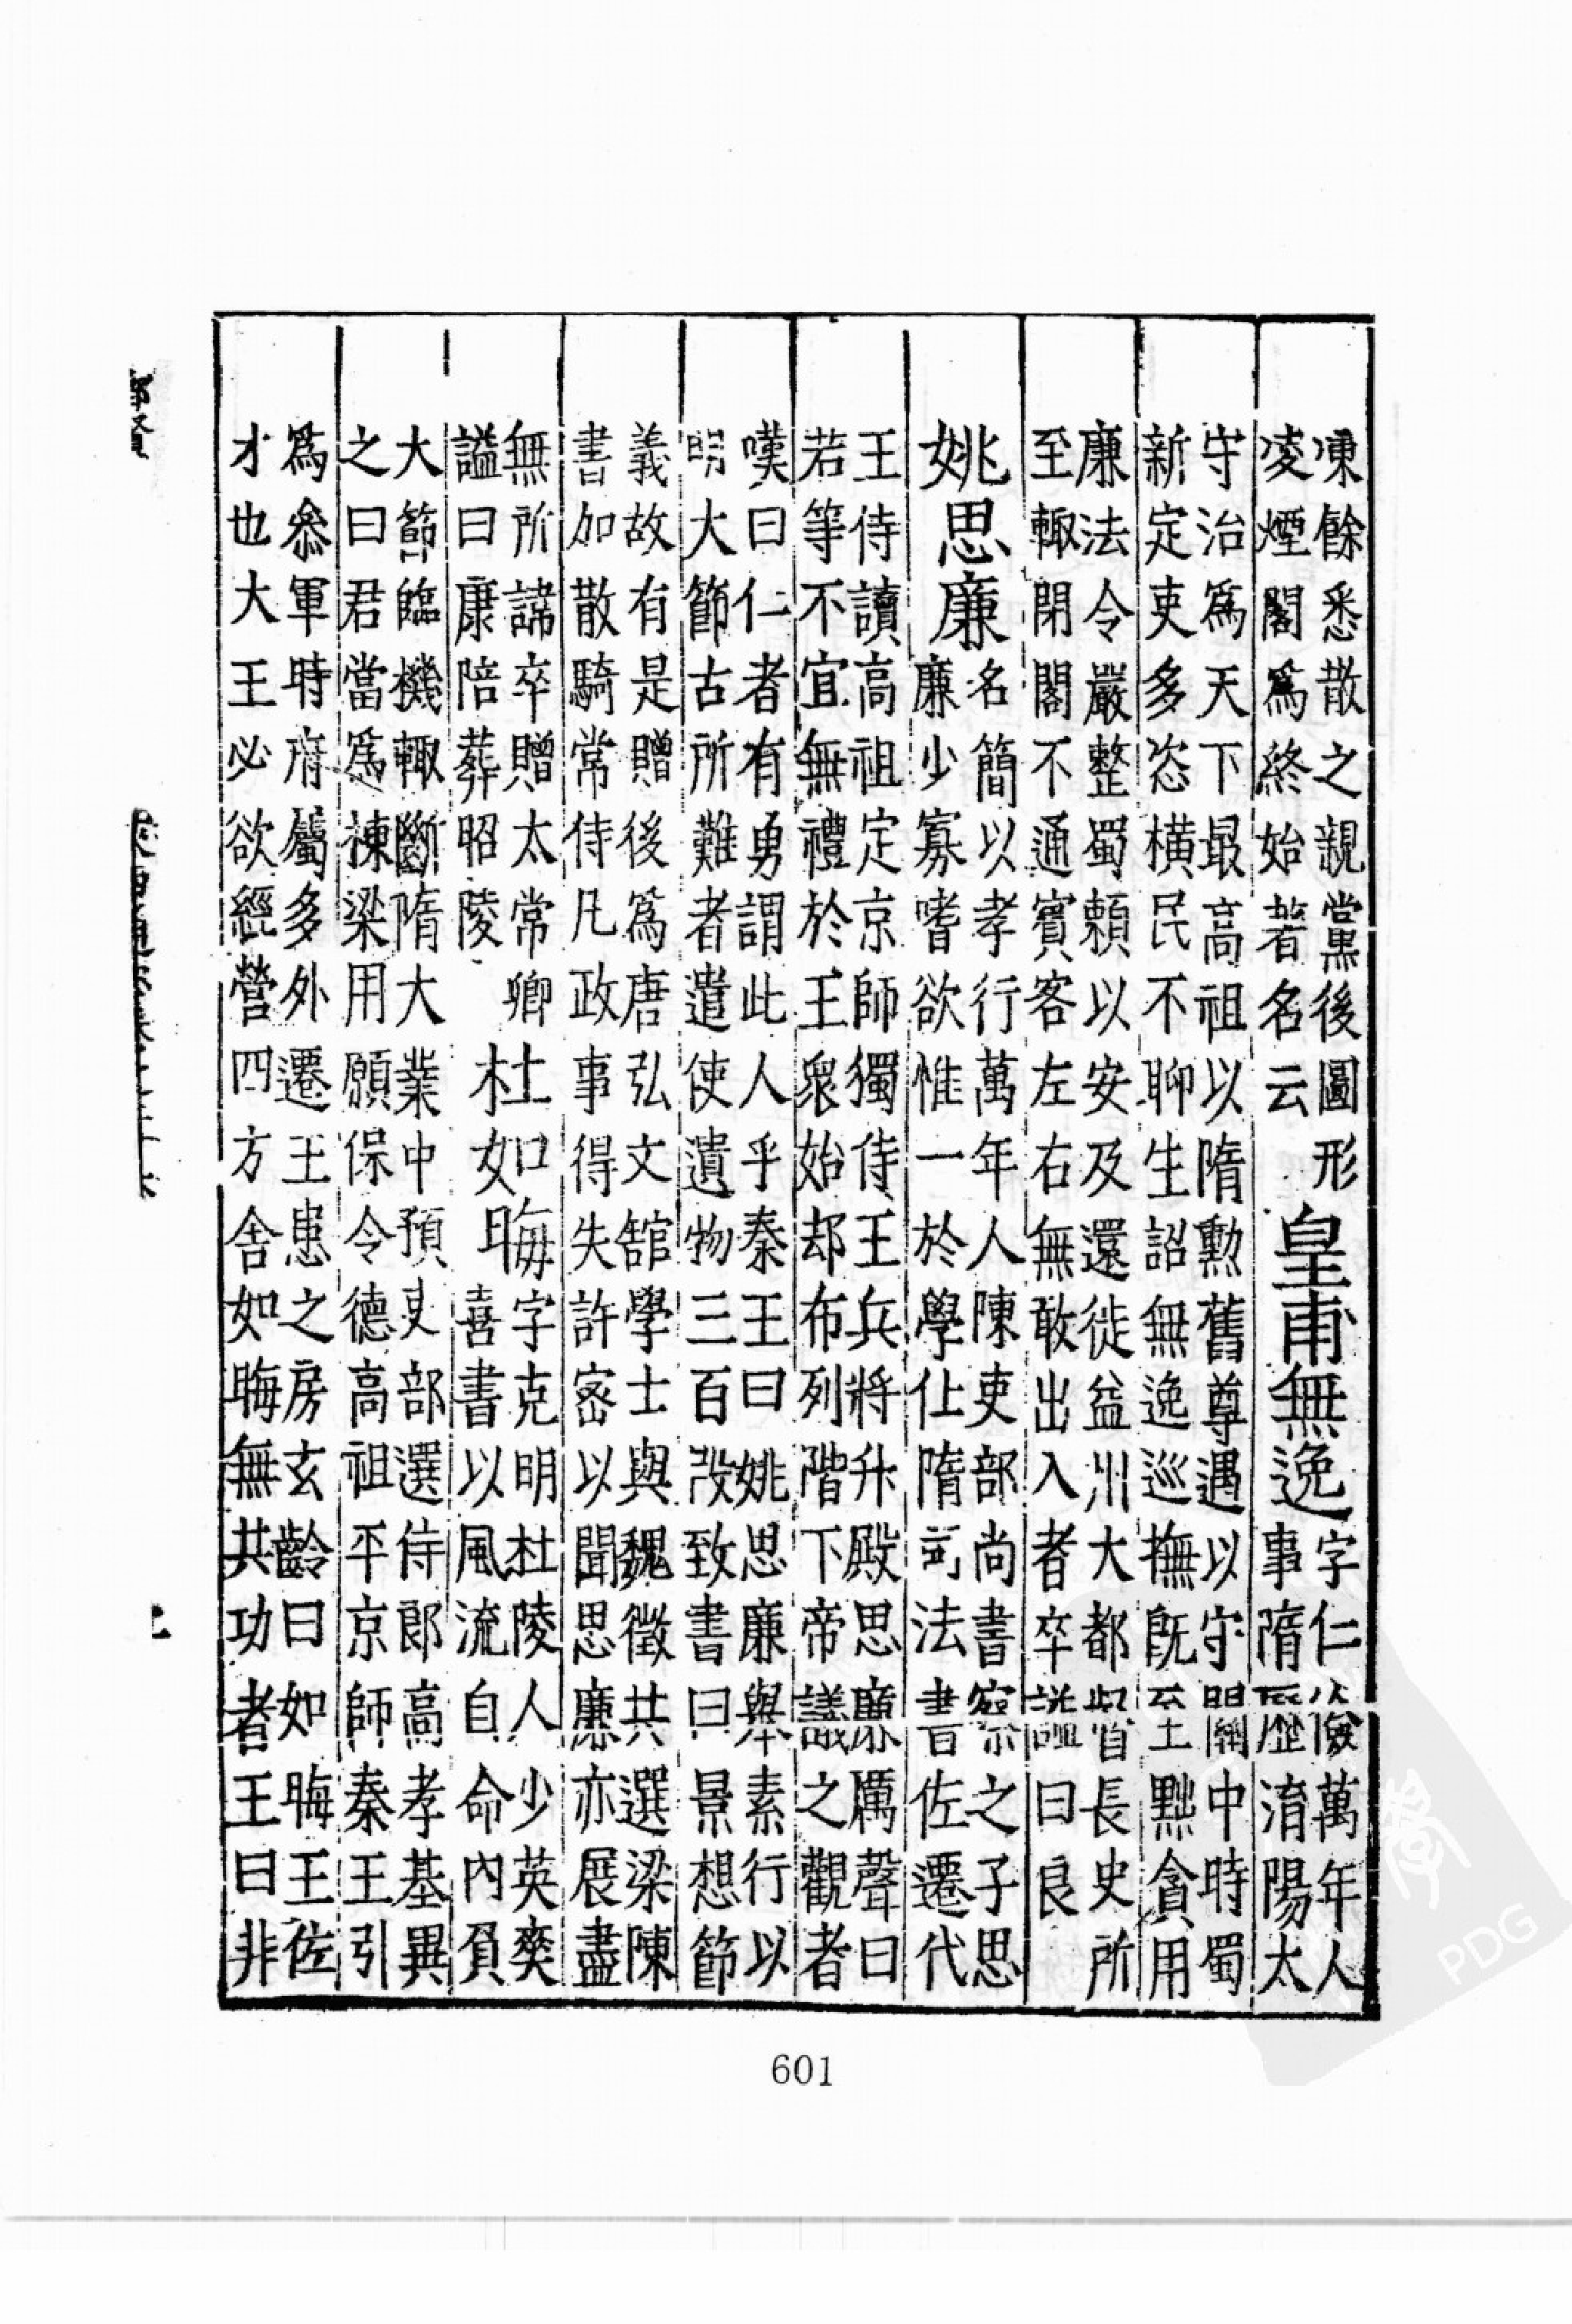 凍餘悉散之親黨後圖形
凌煙閣爲終始著名云
皇甫無逸
字仁儉萬年人
事隋歷淯陽太
守治爲天下最高祖以隋勲舊尊遇以守關中時蜀
新定吏多恣橫民不聊生詔無逸巡撫旣至黜貪用
廉法令嚴整蜀賴以安及還徙益州大都督長史所
至輙閉閣不通賓客左右無敢出入者卒諡曰良
姚思廉
名簡以孝行萬年人陳吏部尚書察之子思
廉少寡嗜欲惟一於學仕隋司法書佐遷代
王侍讀高祖定京師獨侍王兵將升殿思廉厲聲曰
若等不宜無禮於王衆始却布列階下帝議之觀者
嘆曰仁者有勇謂此人乎秦王曰姚思廉舉素行以
明大節古所難者遣使遺物三百段致書曰景想節
義故有是贈後爲唐弘文舘學士與魏徵共選梁陳
書加散騎常侍凡政事得失許密以聞思廉亦展盡
無所諱卒贈太常卿
謚曰康陪葬昭陵
杜如晦
字克明杜陵人少英爽
喜書以風流自命內負
大節臨機輙斷隋大業中預吏部選侍郎高孝基異
之曰君當爲棟梁用願保令德高祖平京師秦王引
爲叅軍時府屬多外遷王患之房玄齡曰如晦王佐
才也大王必欲經營四方舍如晦無共功者王曰非
鄉賢
601
PDG